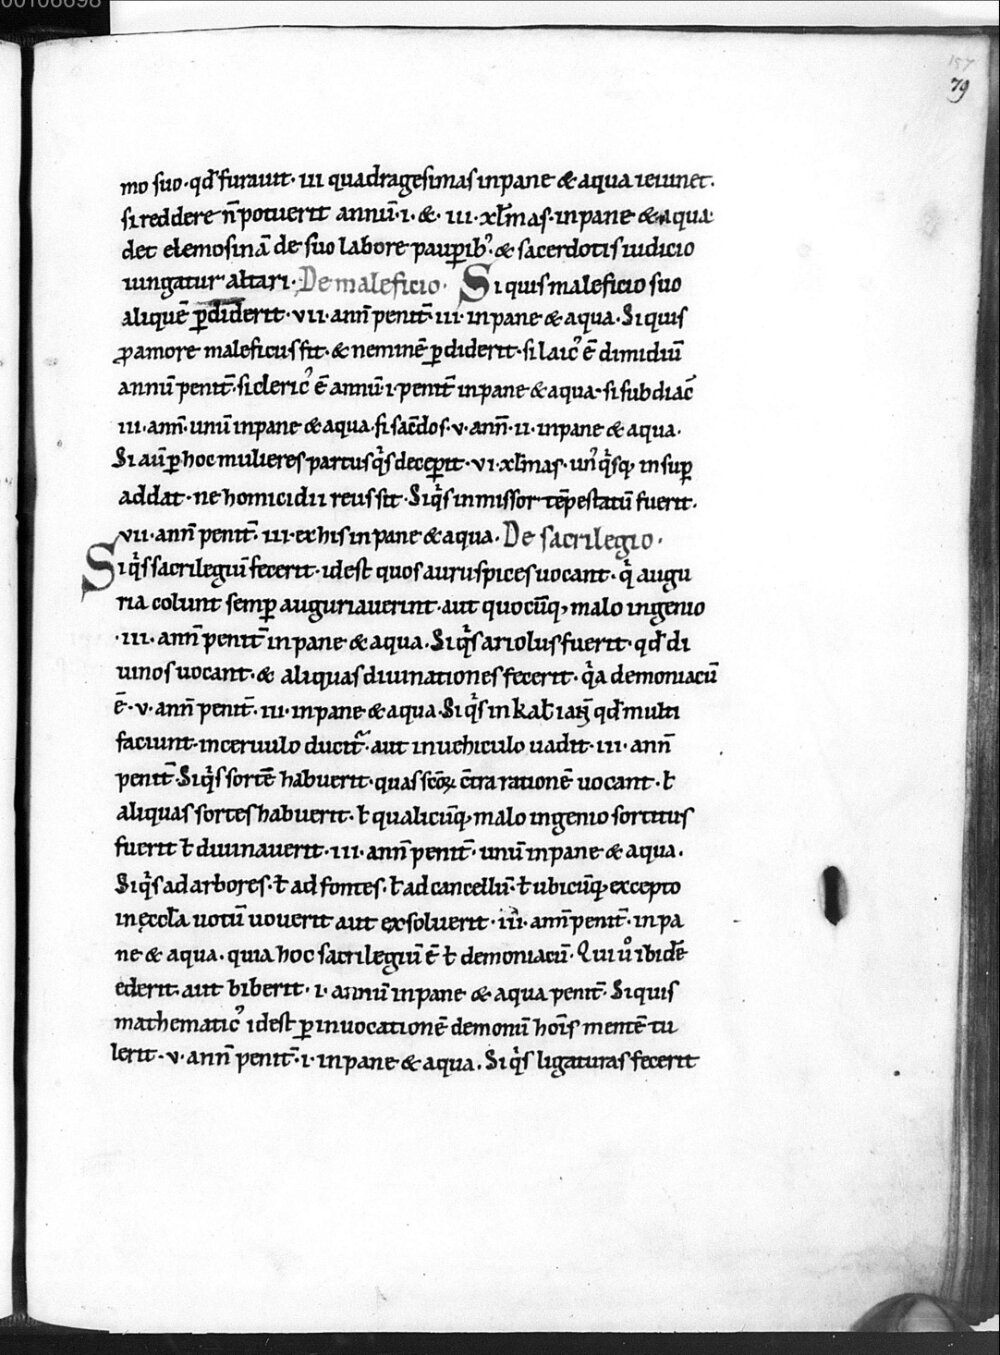 00106698
157
79
mo suo· qđ furauit· iii quadragesimas in pane & aqua ieiunet·
si reddere n̄ potuerit annū· i· & · iii· xl̄mas· in pane & aqua
det elemosinā de suo labore paup̱ib᾽· & sacerdotis iudicio
iungatur altari· De maleficio· Si quis maleficio suo
aliquē p̱diderit· vii· ann̄ penit̄· iii· in pane & aqua· Si quis
ꝓ amore maleficus sit· & neminē p̱diderit· si laic᾽ ē dimidiū
annū penit̄· si cleric᾽ ē annū· i· penit̄ in pane & aqua· si subdiac̄
iii· ann̄· unū in pane & aqua· si sac̄dos· v· ann̄· ii· in pane & aqua·
Si aū p̱ hoc mulieres partus qͥs decep̱it· vi· xl̄mas· un᾽qͥsq; insup̱
addat· ne homicidii reus sit· Si qͥs inmissor tēpestatū fuerit·
vii· ann̄ penit̄· iii· ex his in pane & aqua· De sacrilegio·
Si qͥs sacrilegiū fecerit· id est quos auruspices uocant· qͥ augu
ria colunt semp̱ auguriauerint· aut quocūq; malo ingenio
·iii· ann̄ penit̄ in pane & aqua· Si qͥs ariolus fuerit· qđ di
uinos uocant· & aliquas diuinationes fecerit· qͥa demoniacū
ē· v· ann̄ penit̄· iii· in pane & aqua· Si qͥs in kal̄ iaꝝ qđ multi
faciunt· in ceruulo ducit̄· aut in uehiculo uadit· iii· ann̄
penit̄· Si qͥs sortē habuerit· quas sc̄oꝝ c̄tra rationē uocant· ł
aliquas sortes habuerit· ł qualicūq; malo ingenio sortitus
fuerit ł diuinauerit· iii· ann̄ penit̄· unū in pane & aqua·
Si qͥs ad arbores· ł ad fontes· ł ad cancellū· ł ubicūq; excepto
in ęccl̄a uotū uouerit aut exsoluerit· iii· ann̄ penit̄· in pa
ne & aqua· quia hoc sacrilegiū ē ł demoniacū· Qui ů ibidē
ederit· aut biberit· i· annū in pane & aqua penit̄· Si quis
mathematic᾽ id est p̱ inuocationē demonū hoīs mentē tu
lerit· v· ann̄ penit̄· i· in pane & aqua· Si qͥs ligaturas fecerit